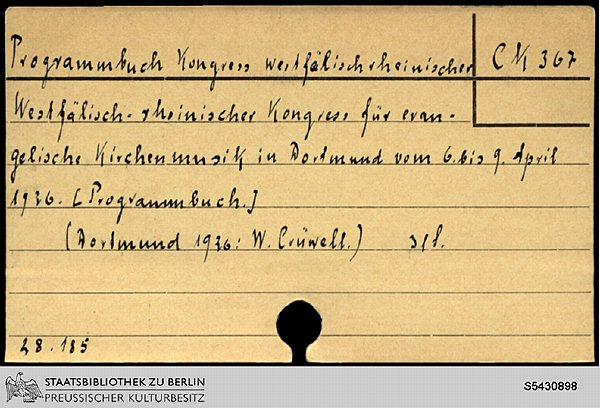 Programmbuch Kongress westfälischrheinischer
Westfälisch-rheinischer Kongress für evan-
gelische Kirchenmusik in Dortmund vom 6. bis 9. April
1936. [Programmbuch.]
(Dortmund 1936: W. Crüwell.)
28.185
STAATSBIBLIOTHEK ZU BERLIN
PREUSSISCHER KULTURBESITZ
S5430898